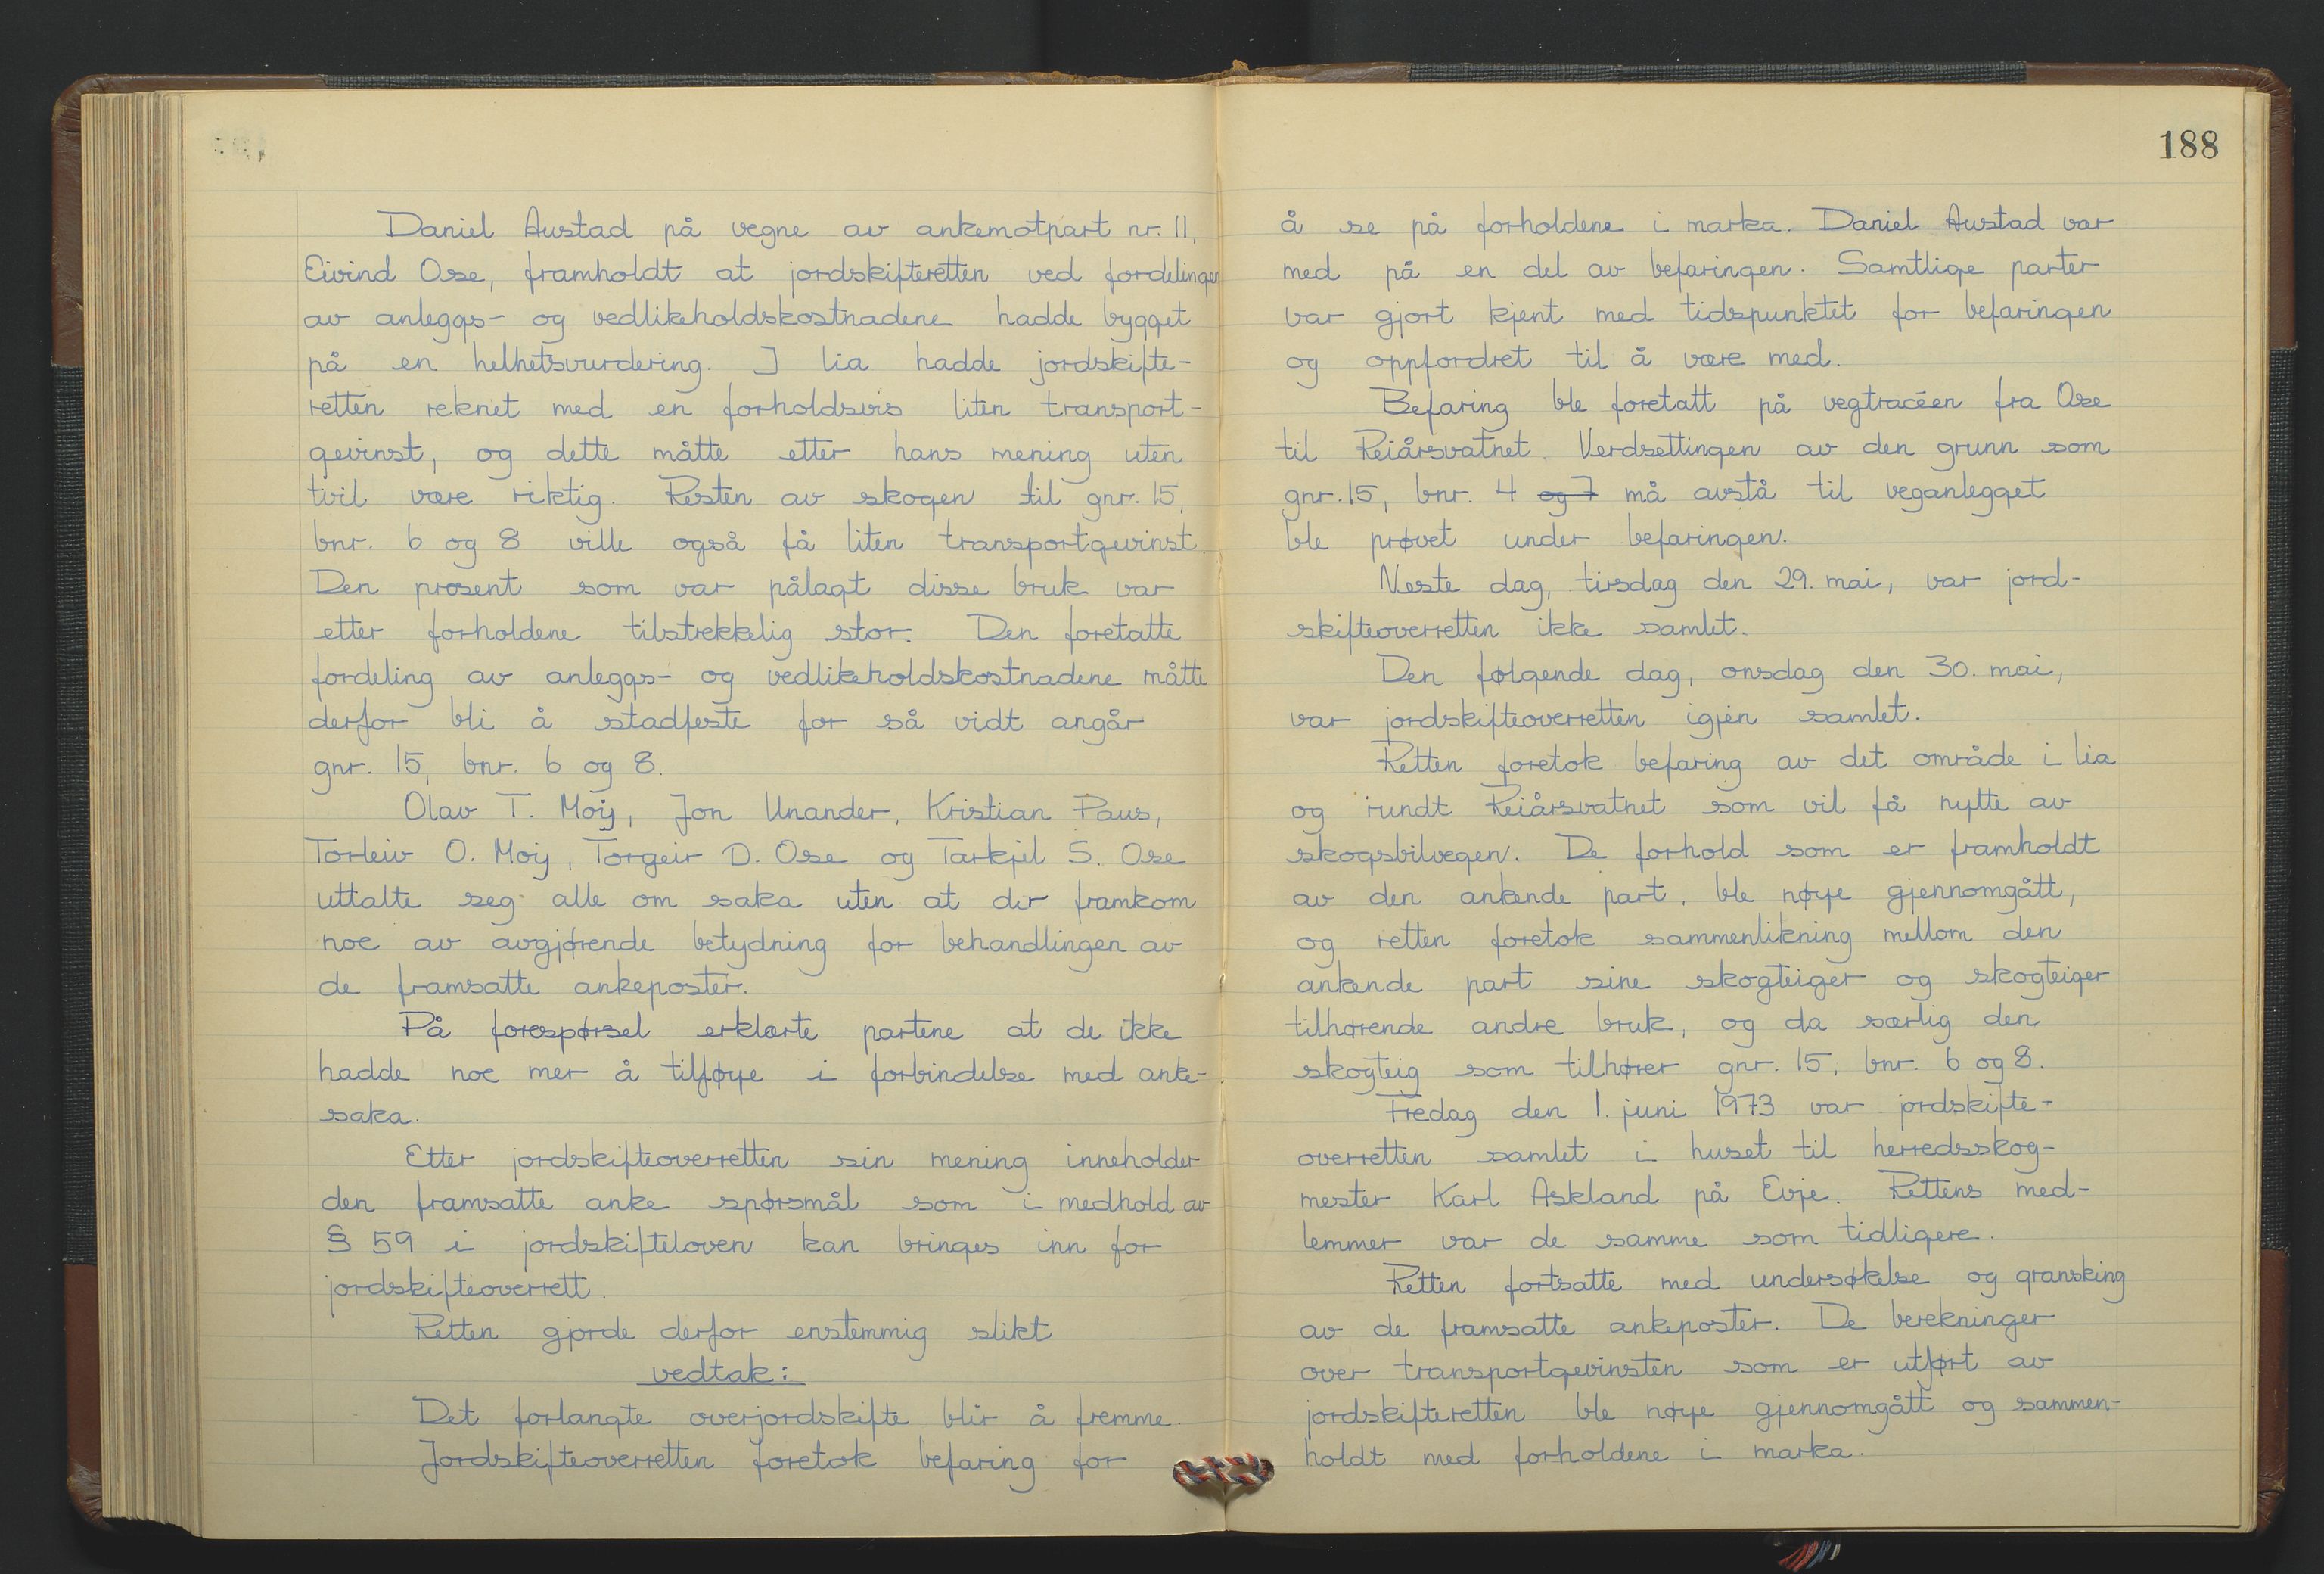 Daniel Austad på vegne av ankemotpart nr. 11,
Eivind Ose, framholdt at jordskifteretten ved fordelingen
av anleggs- og vedlikeholdskostnadene hadde bygget
på en helhetsvurdering. I lia hadde jordskifte-
retten reknet med en forholdsvis liten transport-
gevinst, og dette måtte etter hans mening uten
tvil være riktig. Resten av skogen til gnr. 15,
bnr. 6 og 8 ville også få liten transportgevinst.
Den prosent som var pålagt disse bruk var
etter forholdene tilstrekkelig stor. Den foretatte
fordeling av anleggs- og vedlikeholdskostnadene måtte
derfor bli å stadfeste for så vidt angår
gnr. 15, bnr. 6 og 8.
Olav T. Moij, Jon Unander, Kristian Paus,
Torleiv O. Moij, Torgeir D. Ose og Tarkjel S. Ose
uttalte seg alle om saka uten at der framkom
noe av avgjørende betydning for behandlingen av
de framsatte ankeposter.
På forespørsel erklærte partene at de ikke
hadde noe mer å tilføye i forbindelse med anke-
saka.
Etter jordskifteoverretten sin mening inneholder
den framsatte anke spørsmål som i medhold av
§ 59 i jordskifteloven kan bringes inn for
jordskifteoverrett.
Retten gjorde derfor enstemmig slikt
vedtak:
Det forlangte overjordskifte blir å fremme.
Jordskifteoverretten foretok befaring for
188
å se på forholdene i marka. Daniel Austad var
med på en del av befaringen. Samtlige parter
var gjort kjent med tidspunktet for befaringen
og oppfordret til å være med.
Befaring ble foretatt på vegtracéen fra Ose
til Reiårsvatnet. Verdsettingen av den grunn som
gnr. 15, bnr. 4 og 7 må avstå til veganlegget
ble prøvet under befaringen.
Neste dag, tirsdag den 29. mai, var jord-
skifteoverretten ikke samlet.
Den følgende dag, onsdag den 30. mai,
var jordskifteoverretten igjen samlet.
Retten foretok befaring av det område i lia
og rundt Reiårsvatnet som vil få nytte av
skogsbilvegen. De forhold som er framholdt
av den ankende part, ble nøye gjennomgått,
og retten foretok sammenlikning mellom den
ankende part sine skogteiger og skogteiger
tilhørende andre bruk, og da særlig den
skogteig som tilhører gnr. 15, bnr. 6 og 8.
Fredag den 1. juni 1973 var jordskifte-
overretten samlet i huset til herredsskog-
mester Karl Askland på Evje. Rettens med-
lemmer var de samme som tidligere.
Retten fortsatte med undersøkelse og gransking
av de framsatte ankeposter. De berekninger
over transportgevinsten som er utført av
jordskifteretten ble nøye gjennomgått og sammen-
holdt med forholdene i marka.